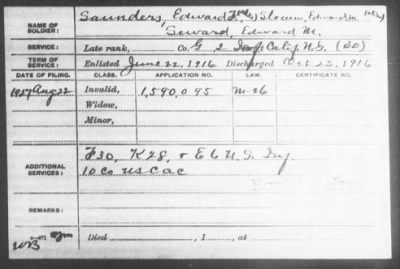 NAME OF SOLDIER: Saunders, Edward Slocum, Edwardin (alias)
Seward, Edward M.
SERVICE: Late rank, Co. G 2 Inf Calif N.G. (DD)
TERM OF SERVICE: Enlisted June 22, 1916 Discharged Oct 23, 1916
DATE OF FILING. CLASS. APPLICATION NO. LAW. CERTIFICATE NO.
1927 Aug 22 Invalid, 1,590,095 m-26
Widow,
Minor,
ADDITIONAL SERVICES: F 30, K 28, & E 6 U.S. Inf.
10 Co USCAC
REMARKS:
WB Died , 1 , at